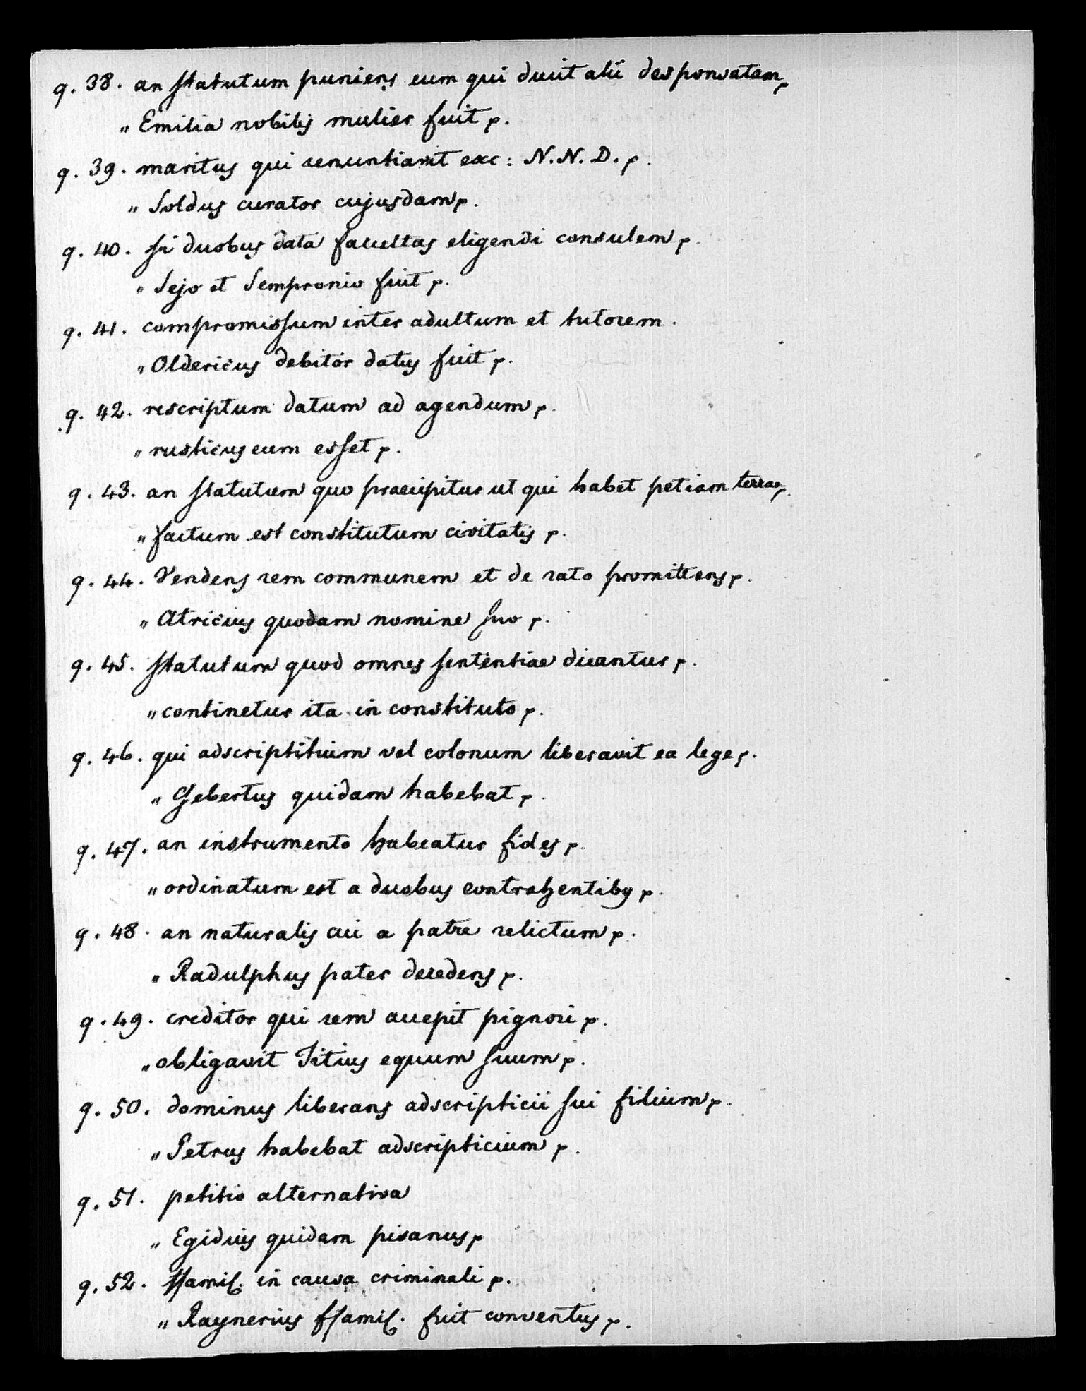 q. 38. an statutum puniens eum qui ducit alii desponsatam p.
„ Emilia nobilis mulier fuit p.
q. 39. maritus qui renuntiavit exc: N.N.D. p.
„ Soldus curator cujusdam p.
q. 40. si duobus data facultas eligendi consulem p.
„ Sejo et Sempronio fuit p.
q. 41. compromissum inter adultum et tutorem.
„ Oldericus debitor datus fuit p.
q. 42. rescriptum datum ad agendum p.
„ rusticus eum esset p.
q. 43. an statutum quo praecipitur ut qui habet petiam terrae p.
„ factum est constitutum civitatis p.
q. 44. Vendens rem communem et de rato promittens p.
„ Atricius quodam nomine suo p.
q. 45. statutum quod omnes sententiae dicantur p.
„ continetur ita in constituto p.
q. 46. qui adscriptitium vel colonum liberavit ea lege p.
„ Gebertus quidam habebat p.
q. 47. an instrumento habeatur fides p.
„ ordinatum est a duobus contrahentibus p.
q. 48. an naturalis cui a patre relictum p.
„ Radulphus pater decedens p.
q. 49. creditor qui rem accepit pignori p.
„ obligavit Titius equum suum p.
q. 50. dominus liberans adscripticii sui filium p.
„ Petrus habebat adscripticium p.
q. 51. petitio alternativa
„ Egidius quidam pisanus p
q. 52. ffamil. in causa criminali p.
„ Raynerius ffamil. fuit conventus p.